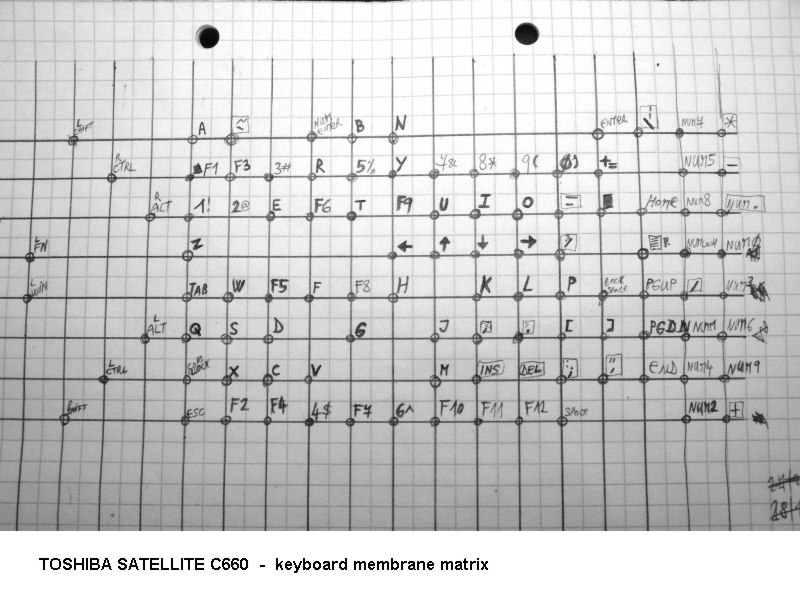 L SHIFT A ~ NUM ENTER B N ENTER | \ NUM7 *
R CTRL F1 F3 3# R 5% Y 7& 8* 9( 0) += NUM5 -
R ALT 1! 2@ E F6 T F9 U I O HOME NUM8 NUM.
L FN Z ← ↑ ↓ → R
L WIN TAB W F5 F F8 H K L P BACK SPACE PGUP /
L ALT Q S D G J [ ] PGDN NUM1 NUM6
L CTRL X C V M INS DEL ; END NUM4 NUM9
SHIFT ESC F2 F4 4$ F7 6^ F10 F11 F12 SPACE NUM2 +
TOSHIBA SATELLITE C660 - keyboard membrane matrix